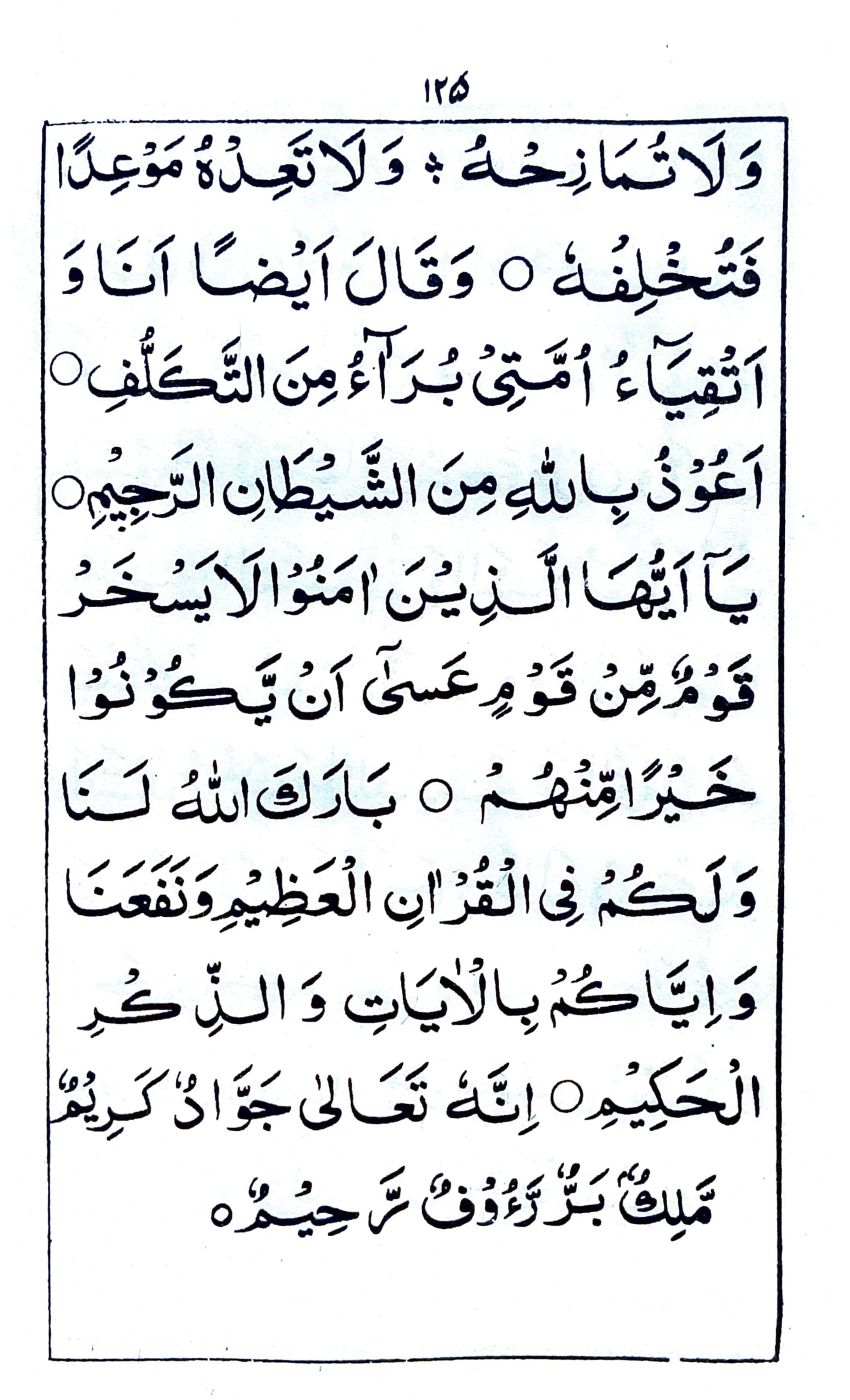 ۱۲۵
وَلَا تُمَازِحْهُ ؞ وَلَا تَعِدْهُ مَوْعِدًا
فَتُخْلِفُهٗ ○ وَقَالَ اَيْضًا اَنَا وَ
اَتْقِيَآءُ اُمَّتِيْ بُرَآءُ مِنَ التَّكَلُّفِ ○
اَعُوْذُ بِاللهِ مِنَ الشَّيْطَانِ الرَّجِيْمِ ○
يَآ اَيُّهَا الَّذِيْنَ اٰمَنُوْا لَا يَسْخَرْ
قَوْمٌ مِّنْ قَوْمٍ عَسٰٓى اَنْ يَّكُوْنُوْا
خَيْرًا مِّنْهُمْ ○ بَارَكَ اللهُ لَنَا
وَلَكُمْ فِي الْقُرْاٰنِ الْعَظِيْمِ وَنَفَعَنَا
وَاِيَّاكُمْ بِالْاٰيَاتِ وَالذِّكْرِ
الْحَكِيْمِ ○ اِنَّهٗ تَعَالٰى جَوَّادٌ كَرِيْمٌ
مَّلِكٌ بَرٌّ رَّءُوْفٌ رَّحِيْمٌ ○